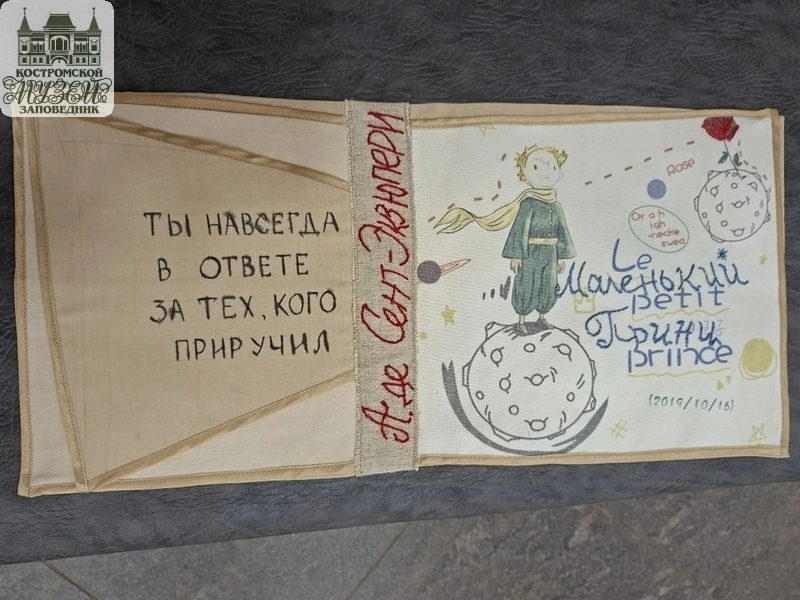 КОСТРОМСКОЙ
МУЗЕЙ
ЗАПОВЕДНИК
ТЫ НАВСЕГДА
В ОТВЕТЕ
ЗА ТЕХ, КОГО
ПРИРУЧИЛ
А. де Сент-Экзюпери
Rose
Or a h
igh
-necke
swea
Le
Маленький
petit
Принц
prince
(2019/10/16)